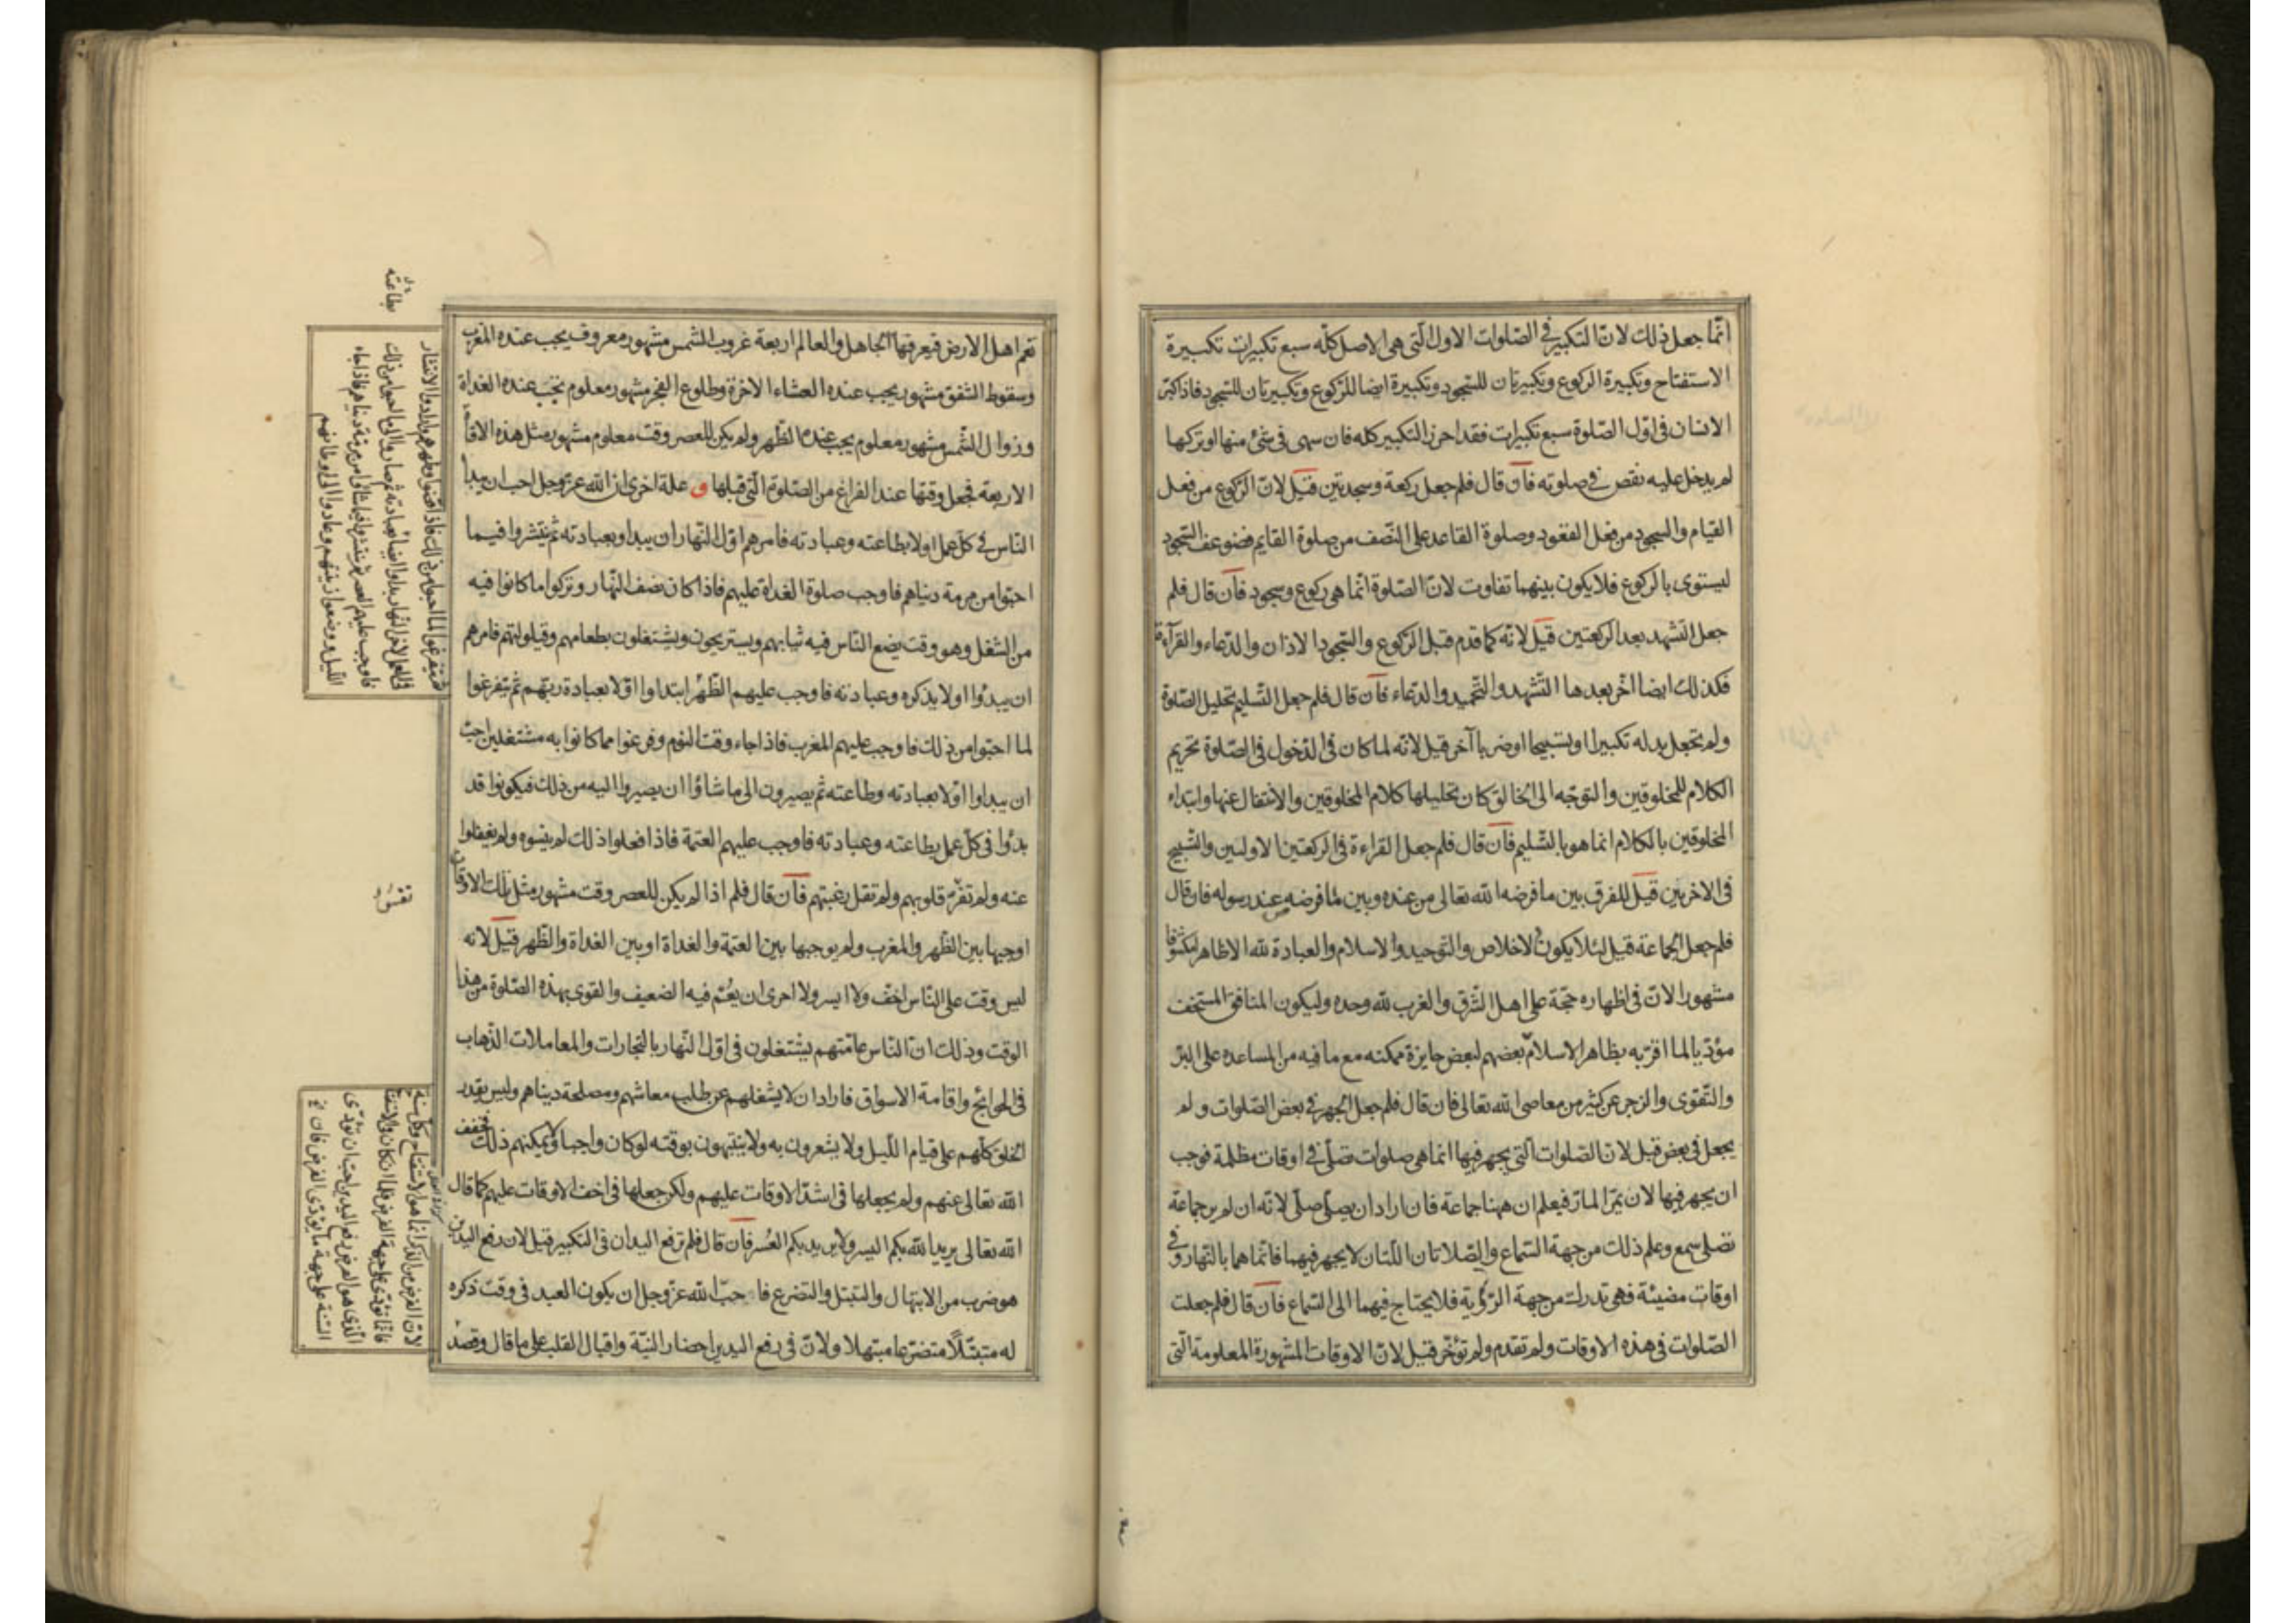 انّما جعل ذلك لانّ التكبير فى الصّلوات الاول الّتى هى الاصل كلّه سبع تكبيرات تكبيرة
الاستفتاح وتكبيرة الركوع وتكبيرتان للسّجود وتكبيرة ايضا للرّكوع وتكبيرتان للسّجود فاذا كبّر
الانسان فى اوّل الصّلوة سبع تكبيرات فقد احرز التكبير كله فان سهى فى شئ منها او تركها
لم يدخل عليه نقص فى صلوته فان قال فلم جعل ركعة وسجدتين قيل لانّ الرّكوع من فعل
القيام والسجود من فعل القعود وصلوة القاعد على النّصف من صلوة القايم فضوعف السّجود
ليستوى بالركوع فلا يكون بينهما تفاوت لانّ الصّلوة انّما هى ركوع وسجود فان قال فلم
جعل التّشهد بعد الركعتين قيل لانّه كما قدم قبل الرّكوع والسّجود الاذان والدّعاء والقرآءة
فكذلك ايضا اخّر بعدها التّشهد والتّحميد والدّعاء فان قال فلم جعل التّسليم تحليل الصّلوة
ولم يجعل بدله تكبيرا او تسبيحا او ضربا آخر قيل لانّه لما كان فى الدّخول فى الصّلوة تحريم
الكلام للمخلوقين والتوجّه الى الخالق كان تحليلها كلام المخلوقين والانتقال عنها وابتداء
المخلوقين بالكلام انما هو بالتّسليم فان قال فلم جعل القراءة فى الركعتين الاوليين والتّسبيح
فى الاخريين قيل للفرق بين ما فرضه الله تعالى من عنده وبين ما فرضه من عند رسوله فان قال
فلم جعل الجماعة قيل لئلا يكون الاخلاص والتوحيد والاسلام والعبادة لله الا ظاهرا مكشوفا
مشهورا لانّ فى اظهاره حجّة على اهل الشّرق والغرب لله وحده وليكون المنافق المستخف
مؤدّيا لما اقرّ به بظاهر الاسلام بعضهم لبعض جايزة ممكنه مع ما فيه من المساعدة على البرّ
والتّقوى والزجر عن كثير من معاصى الله تعالى فان قال فلم جعل الجهر فى بعض الصّلوات ولم
يجعل فى بعض قيل لانّ الصّلوات الّتى يجهر فيها انما هى صلوات تصلّى فى اوقات مظلمة فوجب
ان يجهر فيها لان يمرّ المارّ فيعلم ان ههنا جماعة فان اراد ان يصلّى صلّى لانّه ان لم ير جماعة
تصلى سمع وعلم ذلك من جهة السّماع والصّلاتان اللّتان لا يجهر فيهما فانّما هما بالنّهار وفى
اوقات مضيئة فهى تدرك من جهة الرّؤية فلا يحتاج فيهما الى السّماع فان قال فلم جعلت
الصّلوات فى هذه الاوقات ولم تقدم ولم تؤخّر قيل لانّ الاوقات المشهورة المعلومة الّتى
تعمّ اهل الارض فيعرفها الجاهل والعالم اربعة غروب الشّمس مشهور معروف يجب عنده المغرب
وسقوط الشّفق مشهور يجب عنده العشاء الاخرة وطلوع الفجر مشهور معلوم يجب عنده الغداة
وزوال الشّمس مشهور معلوم يجب عنده الظّهر ولم يكن للعصر وقت معلوم مشهور مثل هذه الاوقات
الاربعة فجعل وقتها عند الفراغ من الصّلوة الّتى قبلها و علة اخرى ان الله عزّ وجل احب ان يبدأ
النّاس فى كلّ عمل اولا بطاعته وعبادته فامرهم اوّل النّهار ان يبداوا بعبادته ثم ينتشروا فيما
احبّوا من مرمة دنياهم فاوجب صلوة الغداة عليهم فاذا كان نصف النّهار وتركوا ما كانوا فيه
من الشغل وهو وقت يضع النّاس فيه ثيابهم ويستريحون ويشتغلون بطعامهم وقيلولتهم فامرهم
ان يبدؤا اولا بذكره وعبادته فاوجب عليهم الظّهر ابتداوا اوّلا بعبادة ربّهم ثم يتفرغوا
لما احبّوا من ذلك فاوجب عليهم المغرب فاذا جاء وقت النوم وفرغوا مما كانوا به مشتغلين احبّ
ان يبداوا اوّلا بعبادته وطاعته ثم يصيرون الى ما شاؤا ان يصيروا اليه من ذلك فيكونوا قد
بدؤا فى كلّ عمل بطاعته وعبادته فاوجب عليهم العتمة فاذا فعلوا ذلك لم ينسوه ولم يغفلوا
عنه ولم تقس قلوبهم ولم تقل رغبتهم فان قال فلم اذا لم يكن للعصر وقت مشهور مثل تلك الاوقات
اوجبها بين الظّهر والمغرب ولم يوجبها بين العتمة والغداة او بين الغداة والظّهر قيل لانه
ليس وقت على النّاس اخفّ ولا ايسر ولا احرى ان يعُمّ فيه الضعيف والقوى بهذه الصّلوة من هذا
الوقت وذلك انّ النّاس عامّتهم يشتغلون فى اوّل النّهار بالتجارات والمعاملات الذّهاب
فى الحوائج واقامة الاسواق فاراد ان لا يشغلهم عن طلب معاشهم ومصلحة دنياهم وليس يقدر
الخلق كلّهم على قيام اللّيل ولا يشعرون به ولا ينتبهون بوقته لو كان واجبا ولا يمكنهم ذلك فخفف
الله تعالى عنهم ولم يجعلها فى اشدّ الاوقات عليهم ولكن جعلها فى اخفّ الاوقات عليهم كما قال
الله تعالى يريد الله بكم اليسر ولا يريد بكم العُسر فان قال فلم ترفع اليدان فى التكبير قيل لان رفع اليدين
هو ضرب من الابتهال والتبتل والتضرع فاحبّ الله عزّ وجل ان يكون العبد فى وقت ذكره
له متبتّلًا متضرّعا مبتهلا ولانّ فى رفع اليدين احضار النيّة واقبال القلب على ما قال وقصد
بطاعته
فاوجب عليهم العصر ثم ينتشرون فيما شاؤا من مرمة دنياهم فاذا جاء
اللّيل ووضعوا زينتهم وعادوا الى اوطانهم
تقس
لانّ الفرض من الذّكر انّما هو الاستفتاح وكلّ سنة
فانّما تؤدّى على جهة الفرض فلمّا ان كان فى الاستفتاح
الّذى هو الفرض رفع اليدين احبّ ان تؤدّى
السّنة على جهة ما يؤدّى الفرض فان